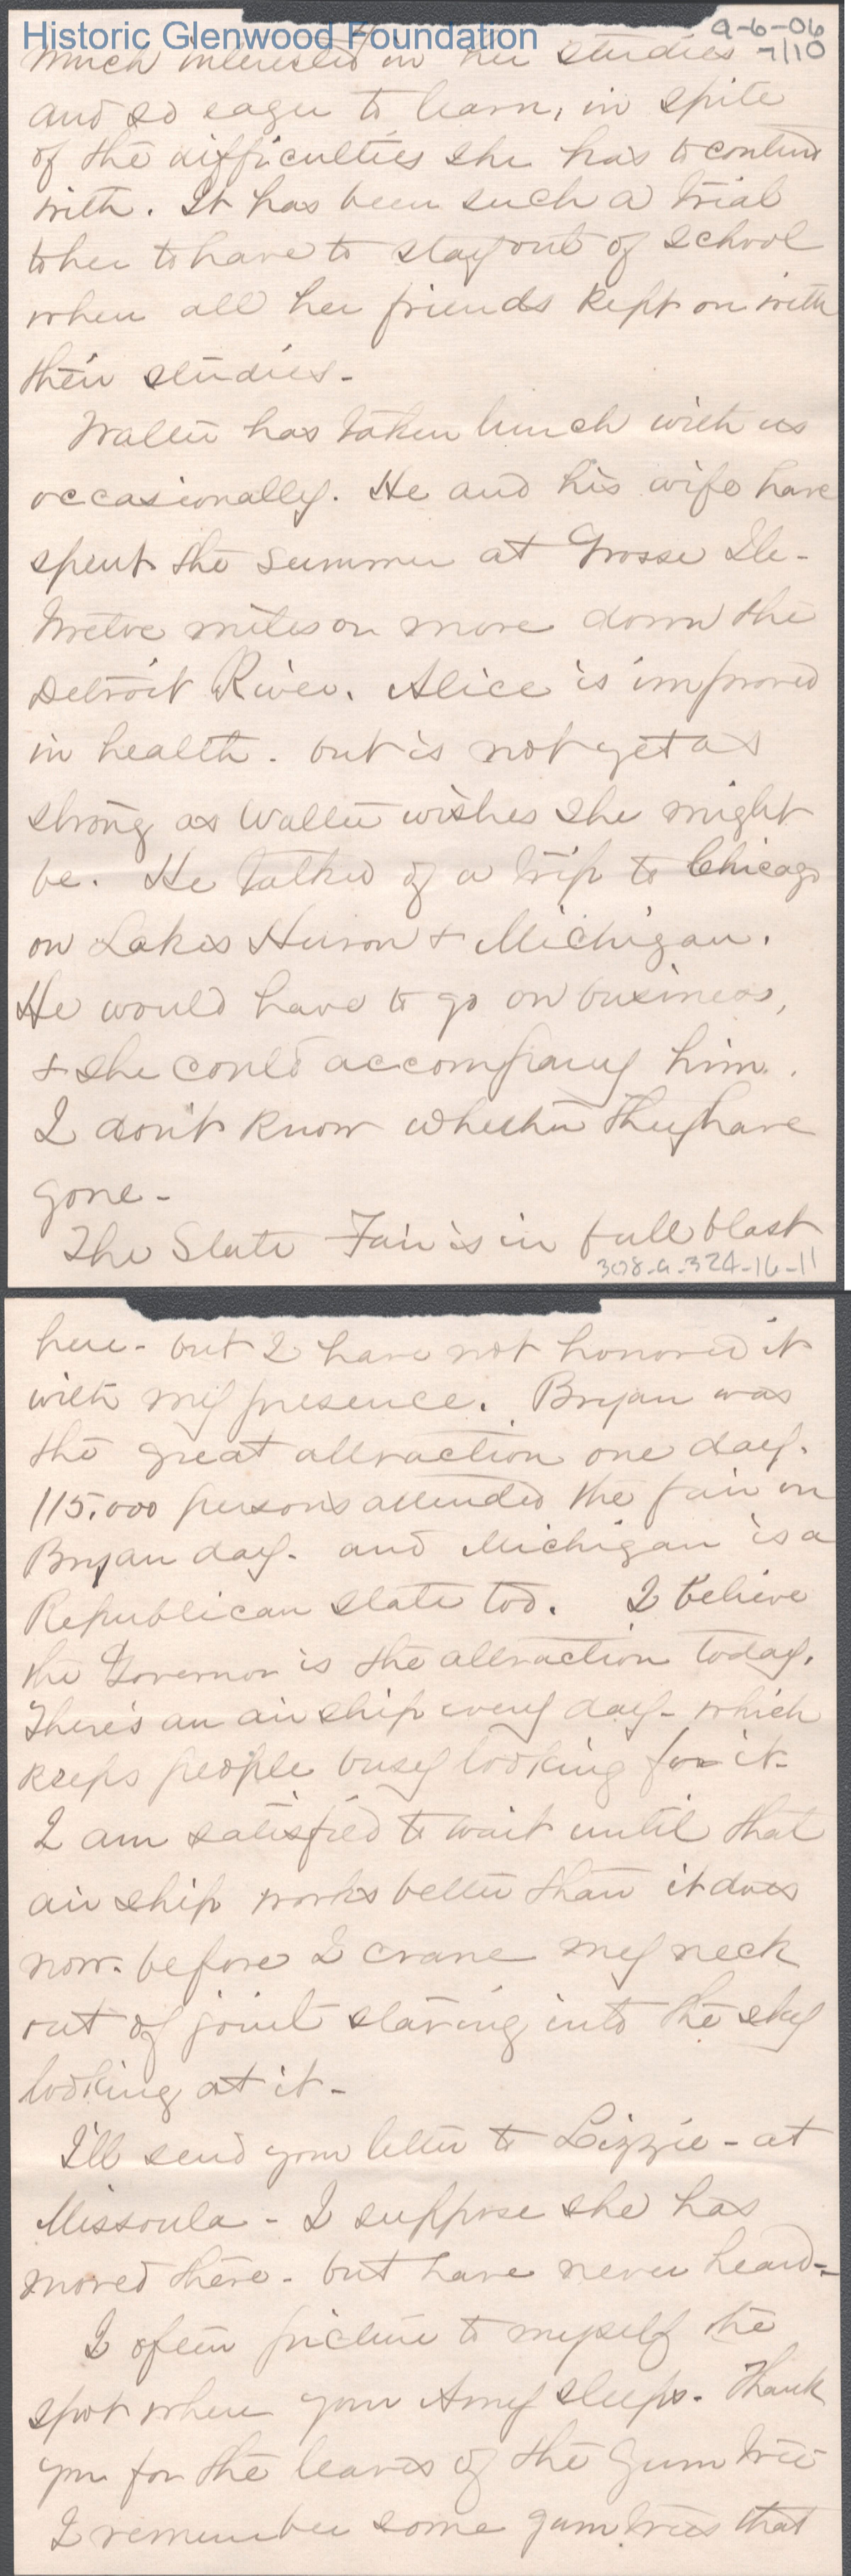 Historic Glenwood Foundation
9-6-06
7/10
much interested in her studies
and so eager to learn, in spite
of the difficulties she has to contend
with. It has been such a trial
to her to have to stay out of school
when all her friends kept on with
their studies-
Walter has taken lunch with us
occasionally. He and his wife have
spent the summer at Grosse Ile-
twelve miles or more down the
Detroit River. Alice is improved
in health. but is not yet as
strong as Walter wishes she might
be. He talked of a trip to Chicago
on Lakes Huron & Michigan.
He would have to go on business,
& she could accompany him.
I don't know whether they have
gone-
The State Fair is in full blast
308-a-324-16-11
here- but I have not honored it
with my presence. Bryan was
the great attraction one day.
115,000 persons attended the fair on
Bryan day- and Michigan is a
Republican state too. I believe
the Governor is the attraction today.
There's an air ship every day- which
keeps people busy looking for it-
I am satisfied to wait until that
air ship works better than it does
now- before I crane my neck
out of joint staring into the sky
looking at it-
I'll send your letter to Lizzie- at
Missoula- I suppose she has
moved there- but have never heard-
I often picture to myself the
spot where your Amy sleeps. Thank
you for the leaves of the gum tree
I remember some gum trees that